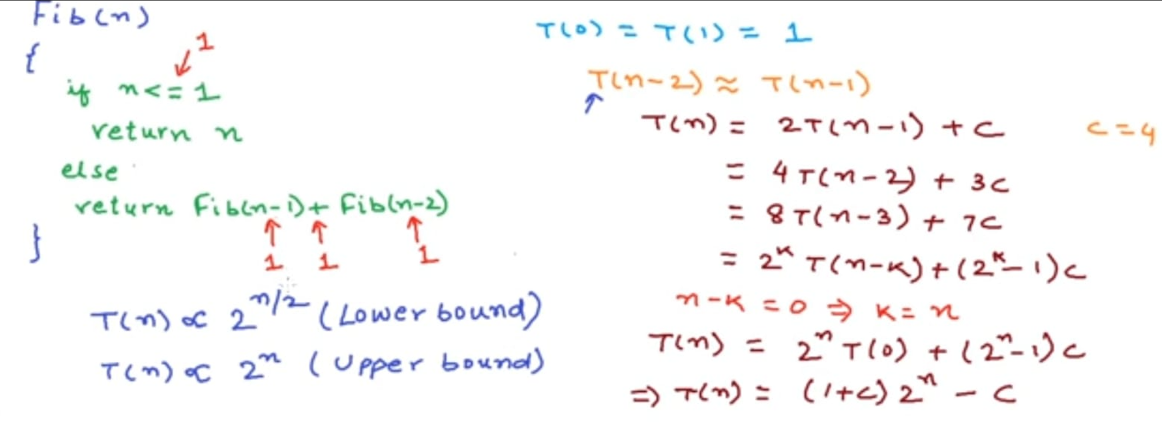 Fib(n)
{
1
if n<=1
return n
else
return Fib(n-1)+ Fib(n-2)
}
1 1 1
T(n) ∝ 2^n/2 (Lower bound)
T(n) ∝ 2^n (Upper bound)
T(0) = T(1) = 1
T(n-2) ≈ T(n-1)
T(n) = 2T(n-1) + c c=4
= 4T(n-2) + 3c
= 8T(n-3) + 7c
= 2^k T(n-k)+(2^k-1)c
n-k = 0 ⇒ k = n
T(n) = 2^n T(0) + (2^n-1)c
⇒ T(n) = (1+c) 2^n - c